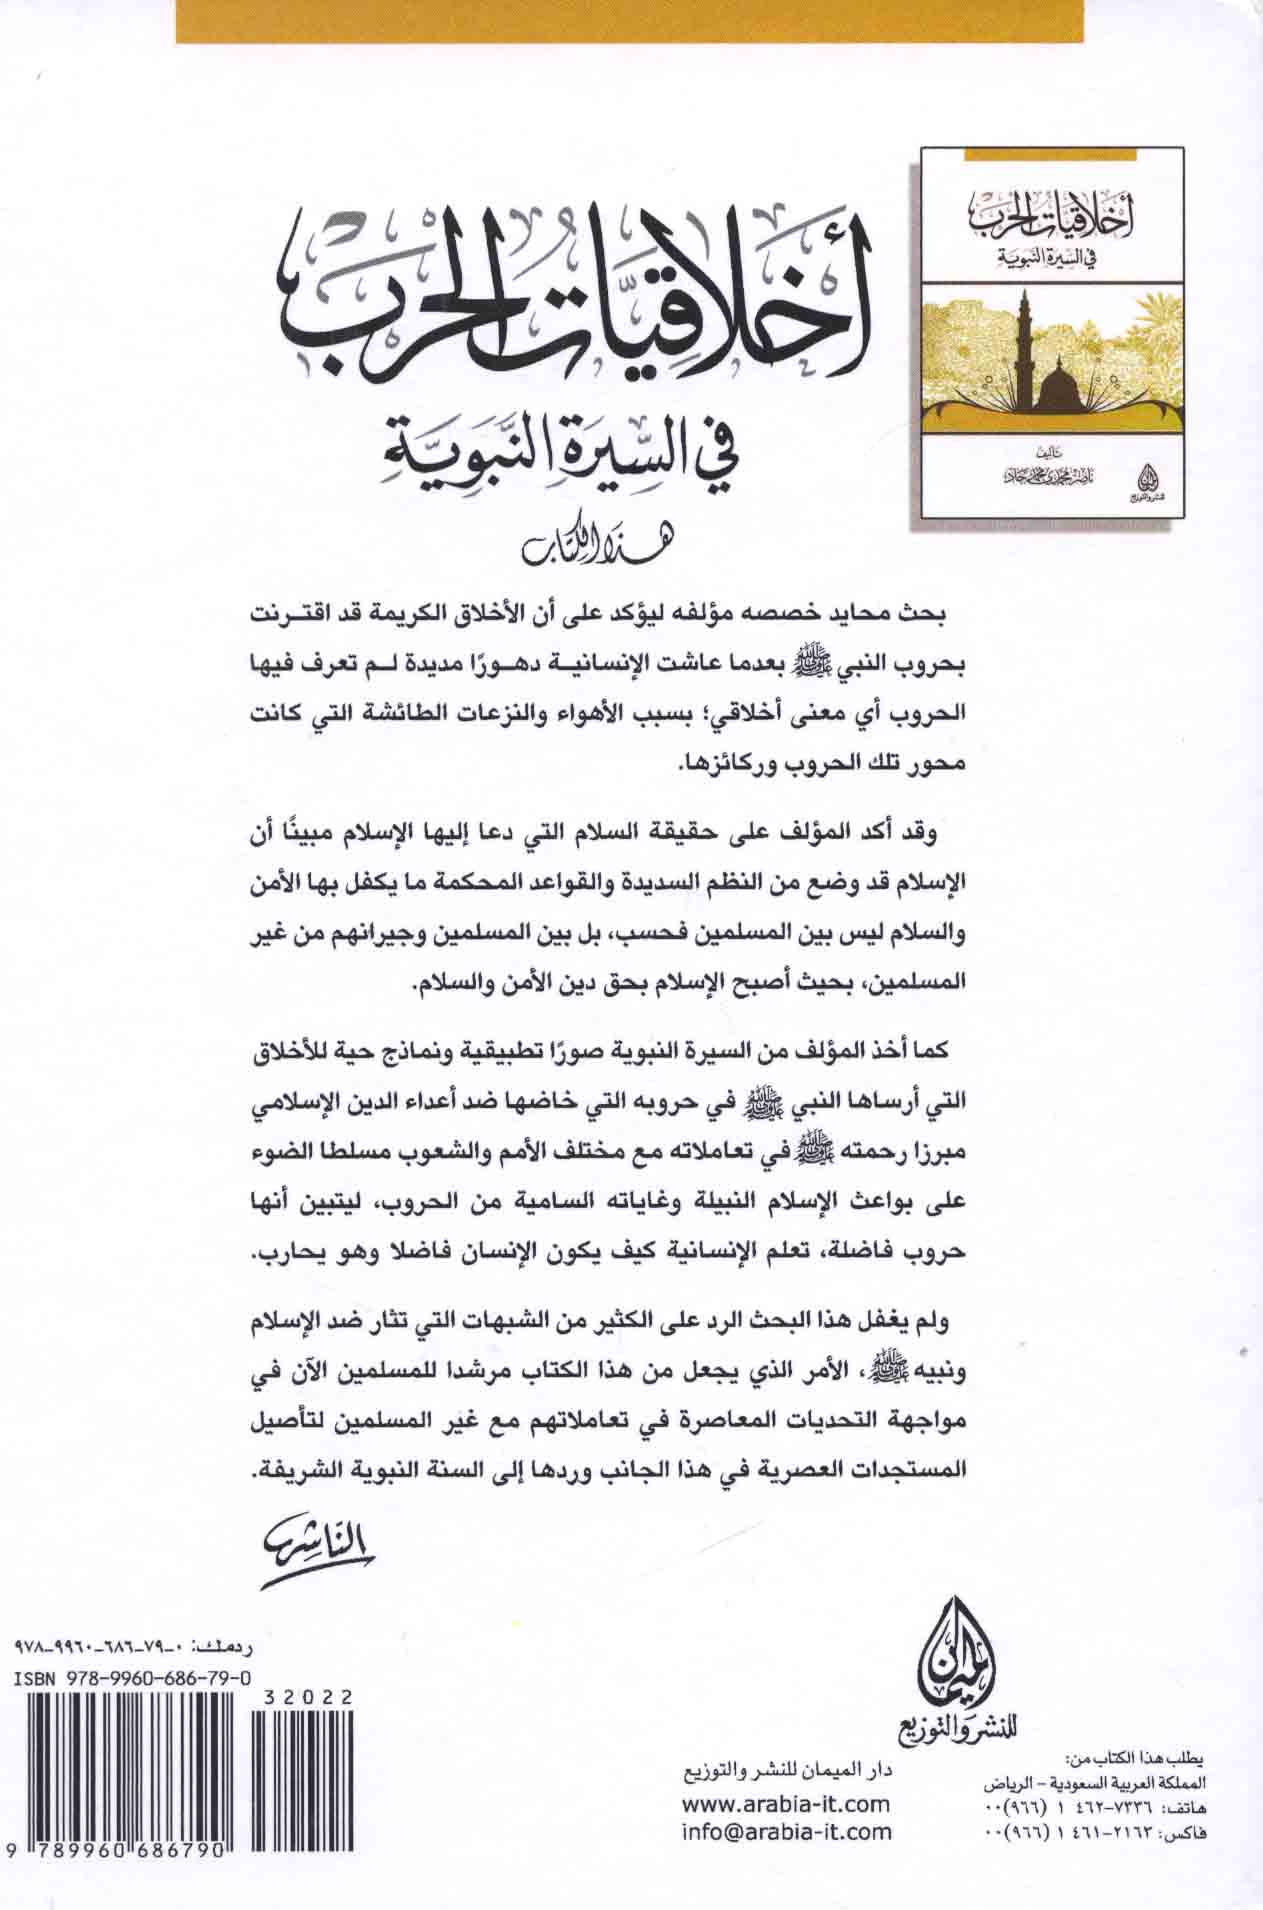 أخلاقيات الحرب
في السيرة النبوية
تأليف
للنشر والتوزيع
أَخلَاقِيَّات الحَرْب
في السِّيرَةِ النَّبَوِيَّةِ
هذا الكتاب
بحث محايد خصصه مؤلفه ليؤكد على أن الأخلاق الكريمة قد اقترنت
بحروب النبي ﷺ بعدما عاشت الإنسانية دهورًا مديدة لم تعرف فيها
الحروب أي معنى أخلاقي؛ بسبب الأهواء والنزعات الطائشة التي كانت
محور تلك الحروب وركائزها.
وقد أكد المؤلف على حقيقة السلام التي دعا إليها الإسلام مبينًا أن
الإسلام قد وضع من النظم السديدة والقواعد المحكمة ما يكفل بها الأمن
والسلام ليس بين المسلمين فحسب، بل بين المسلمين وجيرانهم من غير
المسلمين، بحيث أصبح الإسلام بحق دين الأمن والسلام.
كما أخذ المؤلف من السيرة النبوية صورًا تطبيقية ونماذج حية للأخلاق
التي أرساها النبي ﷺ في حروبه التي خاضها ضد أعداء الدين الإسلامي
مبرزا رحمته ﷺ في تعاملاته مع مختلف الأمم والشعوب مسلطا الضوء
على بواعث الإسلام النبيلة وغاياته السامية من الحروب، ليتبين أنها
حروب فاضلة، تعلم الإنسانية كيف يكون الإنسان فاضلا وهو يحارب.
ولم يغفل هذا البحث الرد على الكثير من الشبهات التي تثار ضد الإسلام
ونبيه ﷺ، الأمر الذي يجعل من هذا الكتاب مرشدا للمسلمين الآن في
مواجهة التحديات المعاصرة في تعاملاتهم مع غير المسلمين لتأصيل
المستجدات العصرية في هذا الجانب وردها إلى السنة النبوية الشريفة.
النَّاشِر
الميمان
للنشر والتوزيع
يطلب هذا الكتاب من:
المملكة العربية السعودية - الرياض
هاتف: ٧٣٣٦-٤٦٢ ١ (٩٦٦)٠٠
فاكس: ٢١٦٣-٤٦١ ١ (٩٦٦)٠٠
دار الميمان للنشر والتوزيع
www.arabia-it.com
info@arabia-it.com
ردملك: ٠-٧٩-٦٨٦-٩٩٦٠-٩٧٨
ISBN 978-9960-686-79-0
32022
9 789960 686790